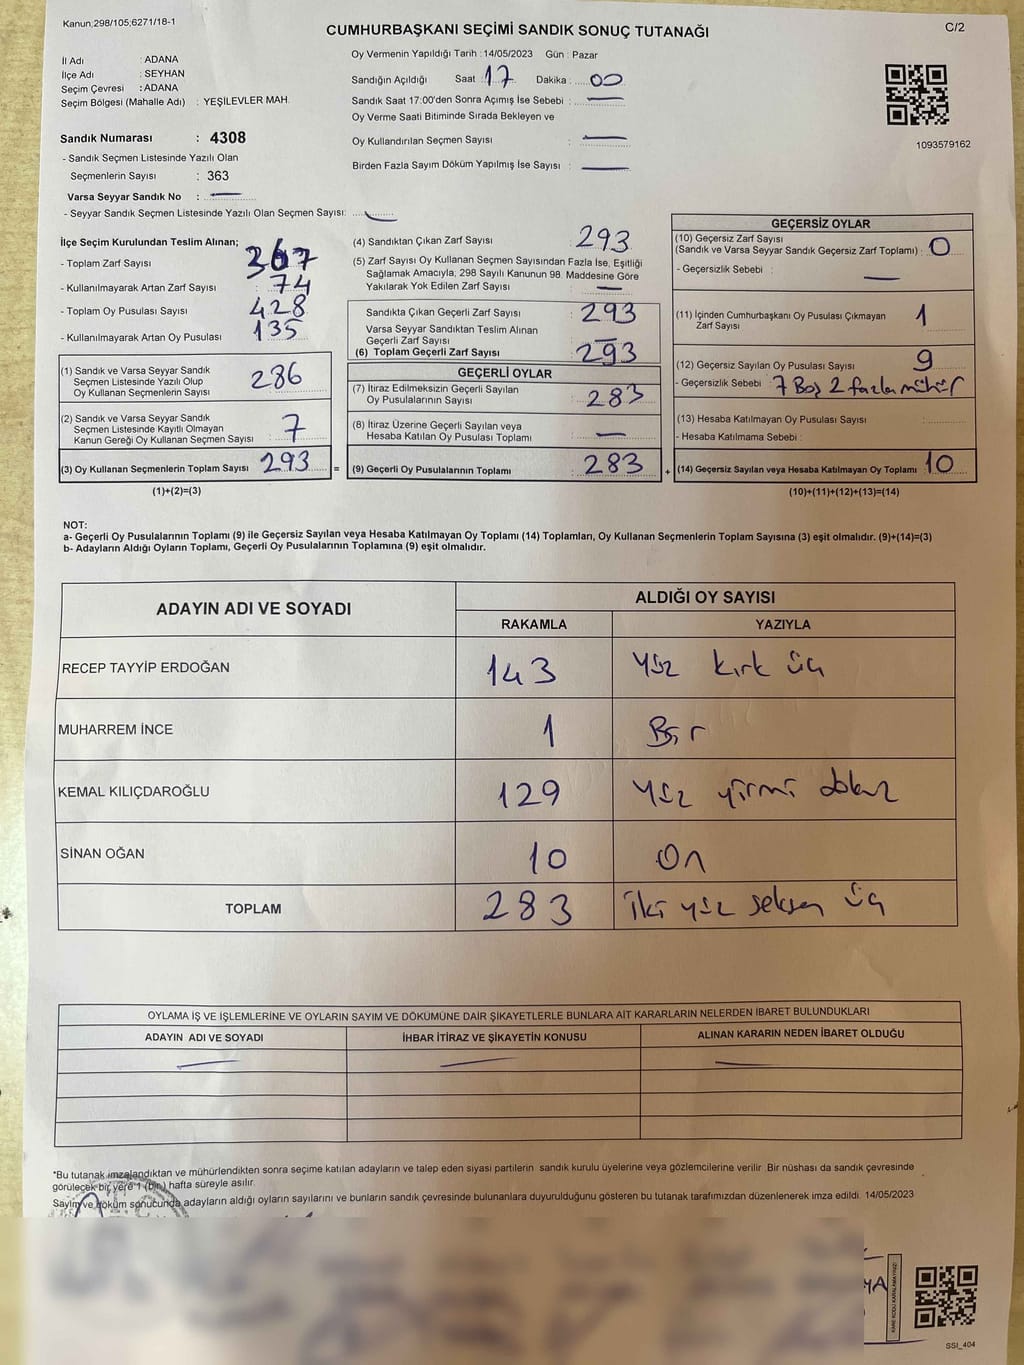 Kanun;298/105;6271/18-1
CUMHURBAŞKANI SEÇİMİ SANDIK SONUÇ TUTANAĞI
C/2
İl Adı : ADANA
İlçe Adı : SEYHAN
Seçim Çevresi : ADANA
Seçim Bölgesi (Mahalle Adı) : YEŞİLEVLER MAH.
Sandık Numarası : 4308
- Sandık Seçmen Listesinde Yazılı Olan
Seçmenlerin Sayısı : 363
Varsa Seyyar Sandık No :
- Seyyar Sandık Seçmen Listesinde Yazılı Olan Seçmen Sayısı:
Oy Vermenin Yapıldığı Tarih : 14/05/2023 Gün : Pazar
Sandığın Açıldığı Saat : 17 Dakika : 00
Sandık Saat 17:00'den Sonra Açımış İse Sebebi :
Oy Verme Saati Bitiminde Sırada Bekleyen ve
Oy Kullandırılan Seçmen Sayısı :
Birden Fazla Sayım Döküm Yapılmış İse Sayısı :
1093579162
İlçe Seçim Kurulundan Teslim Alınan;
- Toplam Zarf Sayısı : 367
- Kullanılmayarak Artan Zarf Sayısı : 74
- Toplam Oy Pusulası Sayısı : 428
- Kullanılmayarak Artan Oy Pusulası : 135
(1) Sandık ve Varsa Seyyar Sandık
Seçmen Listesinde Yazılı Olup
Oy Kullanan Seçmenlerin Sayısı : 286
(2) Sandık ve Varsa Seyyar Sandık
Seçmen Listesinde Kayıtlı Olmayan
Kanun Gereği Oy Kullanan Seçmen Sayısı : 7
(3) Oy Kullanan Seçmenlerin Toplam Sayısı : 293 =
(1)+(2)=(3)
(4) Sandıktan Çıkan Zarf Sayısı : 293
(5) Zarf Sayısı Oy Kullanan Seçmen Sayısından Fazla İse, Eşitliği
Sağlamak Amacıyla; 298 Sayılı Kanunun 98. Maddesine Göre
Yakılarak Yok Edilen Zarf Sayısı :
Sandıkta Çıkan Geçerli Zarf Sayısı : 293
Varsa Seyyar Sandıktan Teslim Alınan
Geçerli Zarf Sayısı :
(6) Toplam Geçerli Zarf Sayısı : 293
GEÇERLİ OYLAR
(7) İtiraz Edilmeksizin Geçerli Sayılan
Oy Pusulalarının Sayısı : 283
(8) İtiraz Üzerine Geçerli Sayılan veya
Hesaba Katılan Oy Pusulası Toplamı :
(9) Geçerli Oy Pusulalarının Toplamı : 283 +
GEÇERSİZ OYLAR
(10) Geçersiz Zarf Sayısı
(Sandık ve Varsa Seyyar Sandık Geçersiz Zarf Toplamı) : 0
- Geçersizlik Sebebi :
(11) İçinden Cumhurbaşkanı Oy Pusulası Çıkmayan
Zarf Sayısı : 1
(12) Geçersiz Sayılan Oy Pusulası Sayısı : 9
- Geçersizlik Sebebi : 7 Boş 2 fazla mühür
(13) Hesaba Katılmayan Oy Pusulası Sayısı :
- Hesaba Katılmama Sebebi :
(14) Geçersiz Sayılan veya Hesaba Katılmayan Oy Toplamı : 10
(10)+(11)+(12)+(13)=(14)
NOT:
a- Geçerli Oy Pusulalarının Toplamı (9) ile Geçersiz Sayılan veya Hesaba Katılmayan Oy Toplamı (14) Toplamları, Oy Kullanan Seçmenlerin Toplam Sayısına (3) eşit olmalıdır. (9)+(14)=(3)
b- Adayların Aldığı Oyların Toplamı, Geçerli Oy Pusulalarının Toplamına (9) eşit olmalıdır.
ADAYIN ADI VE SOYADI
ALDIĞI OY SAYISI
RAKAMLA YAZIYLA
RECEP TAYYİP ERDOĞAN 143 Yüz kırk üç
MUHARREM İNCE 1 Bir
KEMAL KILIÇDAROĞLU 129 Yüz yirmi dokuz
SİNAN OĞAN 10 On
TOPLAM 283 İki yüz seksen üç
OYLAMA İŞ VE İŞLEMLERİNE VE OYLARIN SAYIM VE DÖKÜMÜNE DAİR ŞİKAYETLERLE BUNLARA AİT KARARLARIN NELERDEN İBARET BULUNDUKLARI
ADAYIN ADI VE SOYADI İHBAR İTİRAZ VE ŞİKAYETİN KONUSU ALINAN KARARIN NEDEN İBARET OLDUĞU
*Bu tutanak imzalandıktan ve mühürlendikten sonra seçime katılan adayların ve talep eden siyasi partilerin sandık kurulu üyelerine veya gözlemcilerine verilir. Bir nüshası da sandık çevresinde
görülecek bir yere 1 (bir) hafta süreyle asılır.
Sayım ve döküm sonucunda adayların aldığı oyların sayılarını ve bunların sandık çevresinde bulunanlara duyurulduğunu gösteren bu tutanak tarafımızdan düzenlenerek imza edildi. 14/05/2023
KARE KODU KARALAMAYINIZ!
SSİ_404